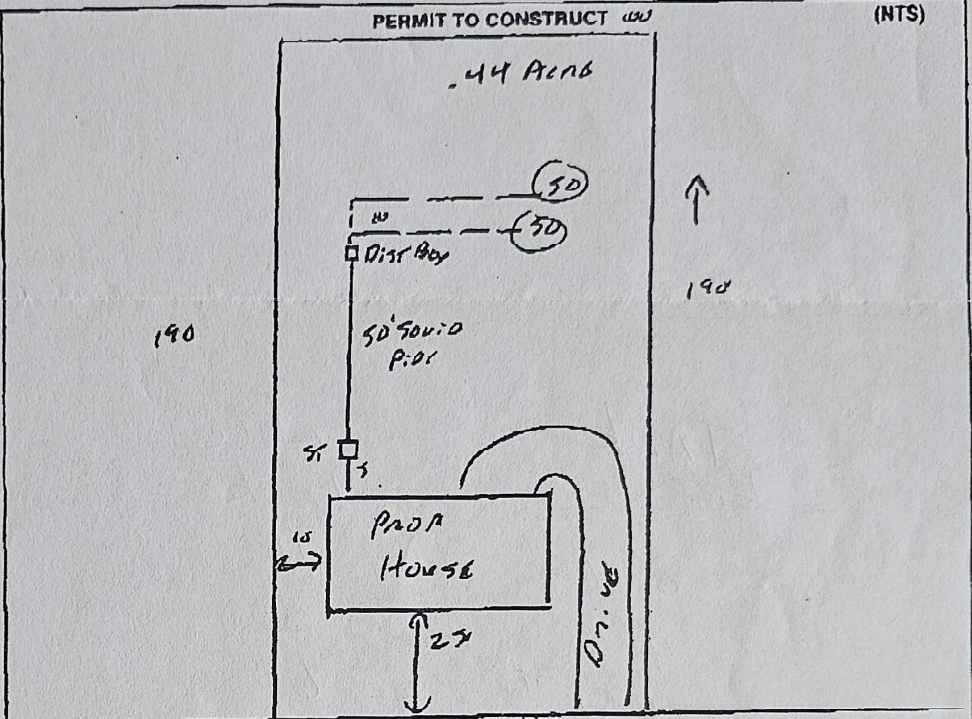 PERMIT TO CONSTRUCT 100
(NTS)
.44 Acres
50
10
50
Dist Box
190
190
50' Solid
Pipe
ST
5
10
Prop
House
25
Drive